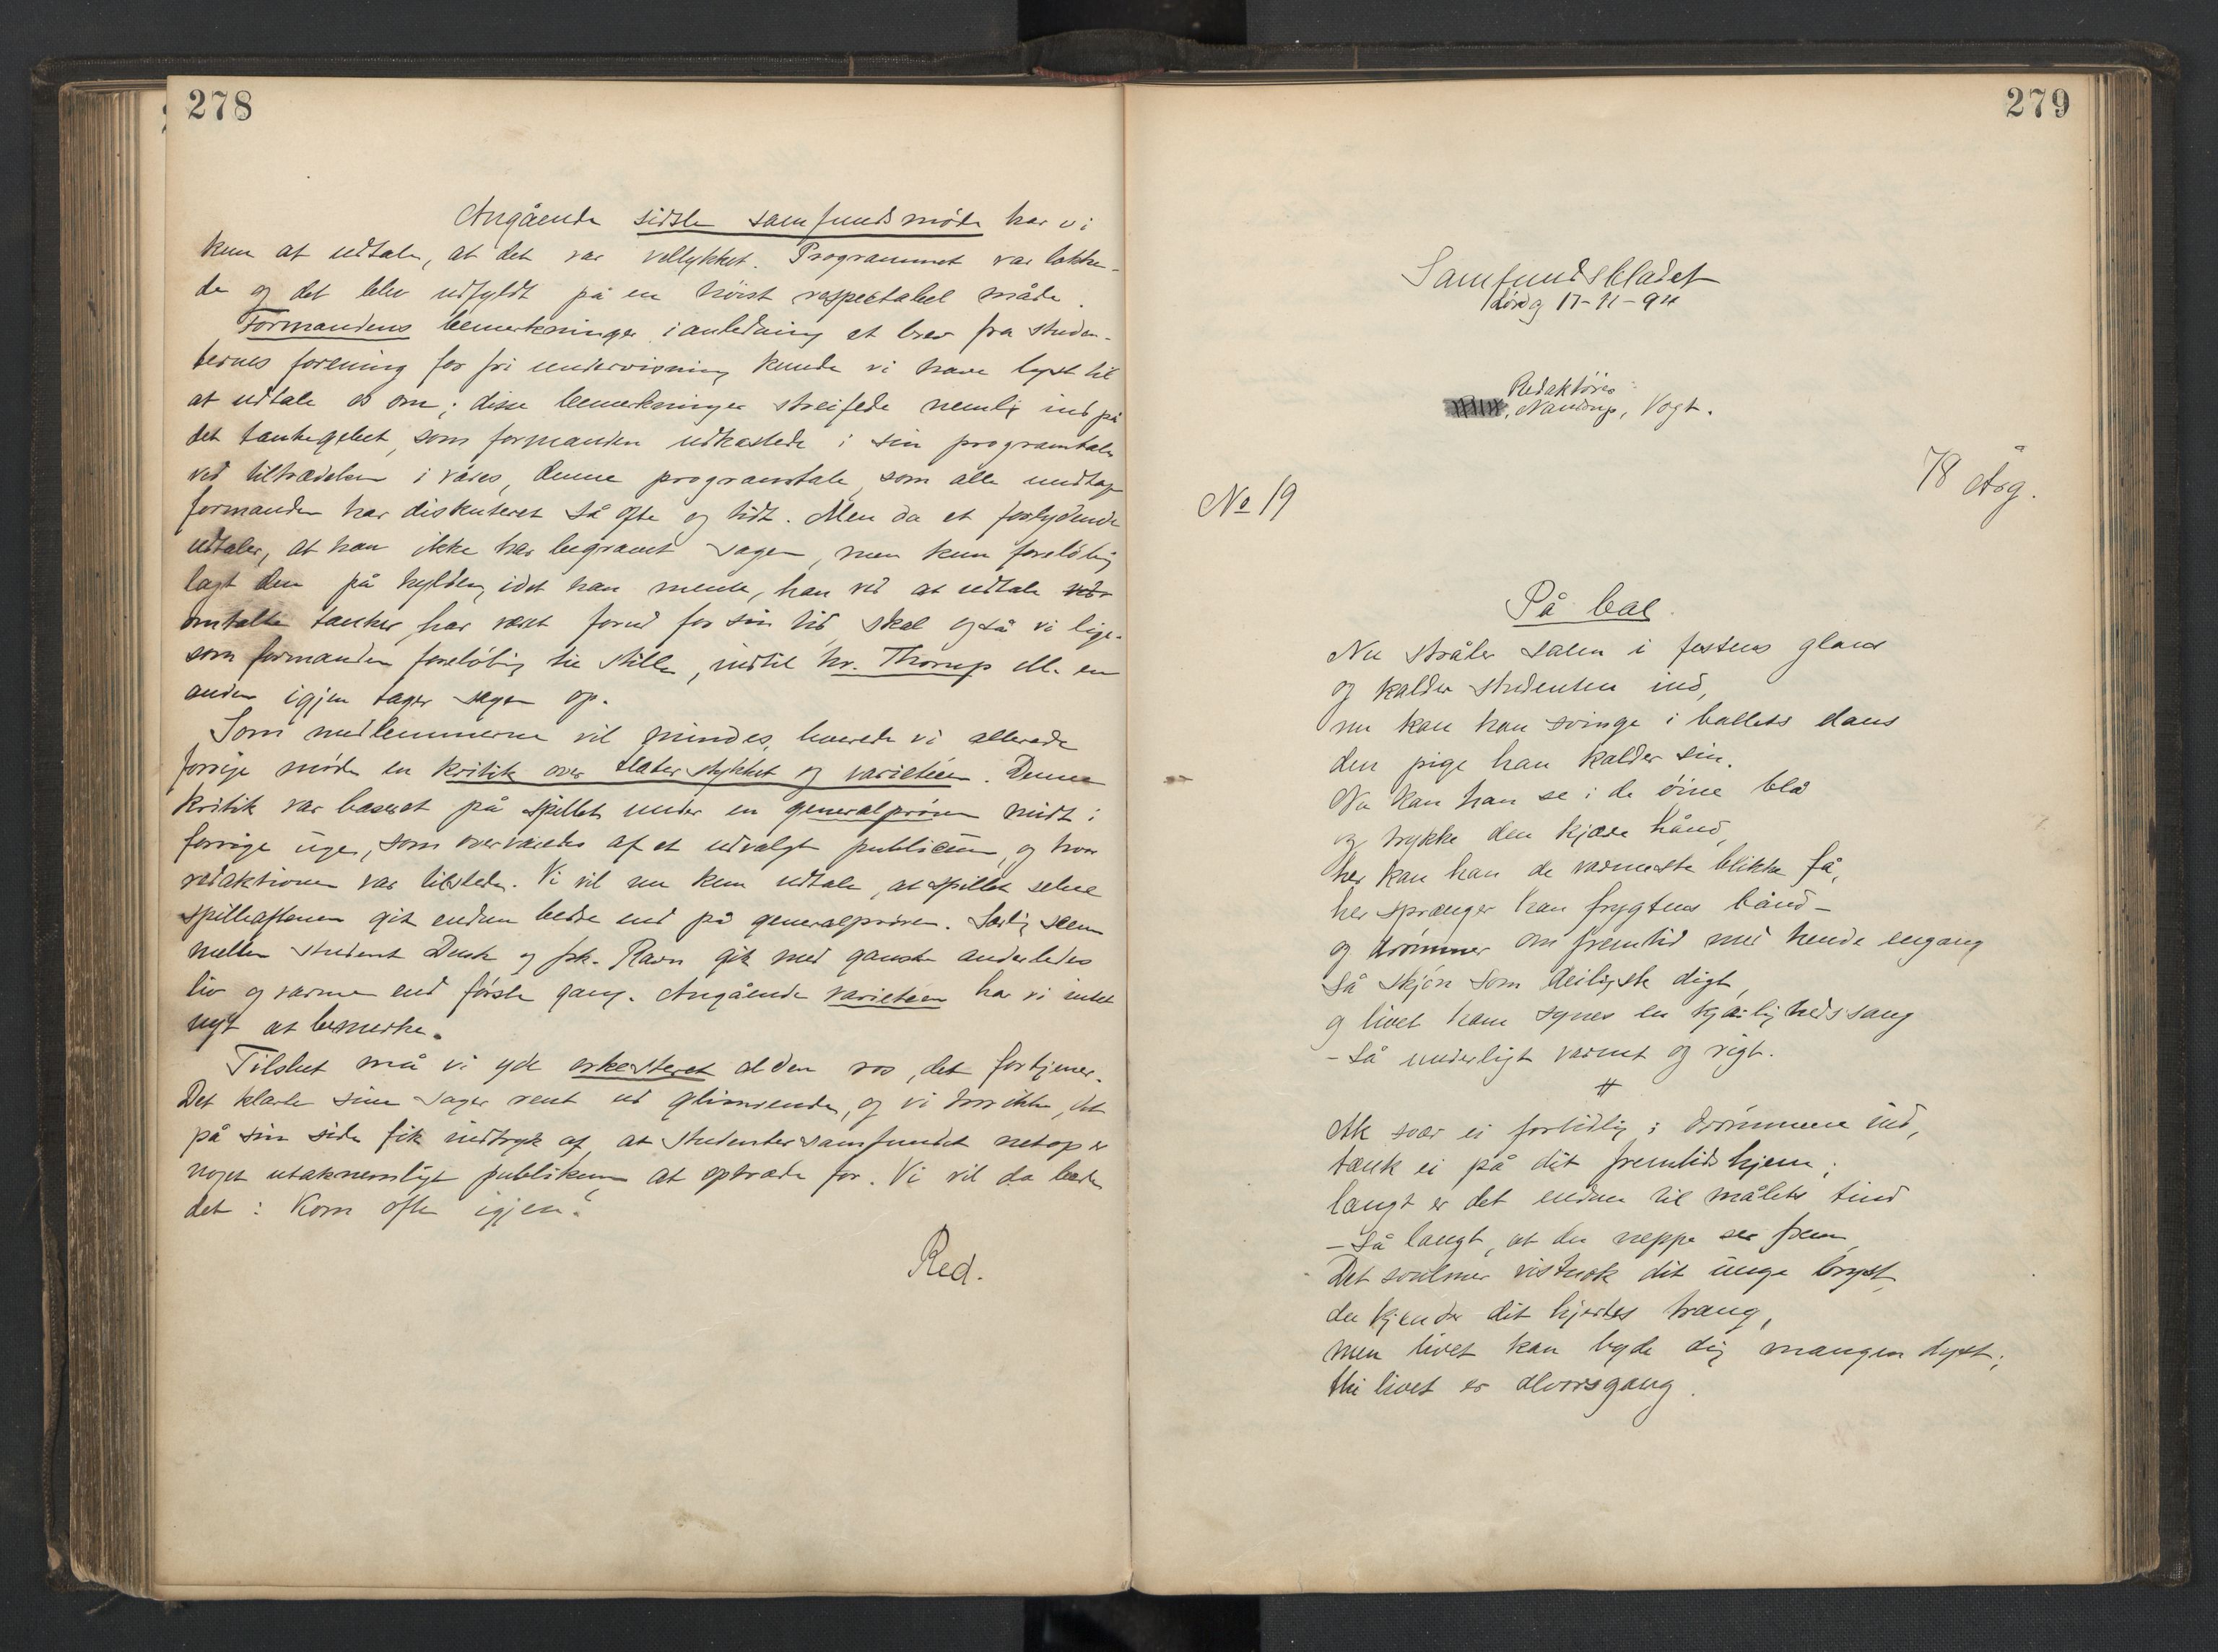 278
Angående sidste samfundsmöde har vi
kun at udtale, at det var vellykket. Programmet var lokken-
de og det blev udfyldt på en höist respectabel måde.
Formandens bemerkninger i anledning et brev fra studen-
ternes forening for fri undervisning kunde vi have lyst til
at udtale os om; disse bemerkninger streifede nemlig ind på
det tankegebet, som formanden udkastede i sin programtale
ved tiltrædelsen i våres, denne programtale, som alle undtag
formanden har diskuteret så ofte og tidt. Men da et forlydende
udtaler, at han ikke har begravet sagen, men kun forelöbig
lagt den på hylden, idet han mente, han ved at udtale
omtalte tanker har været forud for sin tid, skal også vi lige-
som formanden forelöbig tie stille, indtil hr. Thorup ell. en
anden igjen tager sagen op.
Som medlemmerne vil mindes, leverede vi allerede
forrige möde en kritik over teaterstykket og varieteen. Denne
kritik var baseret på spillet under en generalpröve midt i
forrige uge, som overværedes af et udvalgt publicum, og hvor
redaktionen var tilstede. Vi vil nu kun udtale, at spillet selve
spilleaftenen gik endnu bedre end på generalpröven. Særlig scenen
mellem student Dusk og frk. Ravn gik med ganske anderledes
liv og varme end förste gang. Angående varieteen har vi intet
nyt at bemerke.
Tilslut må vi yde orkesteret al den ros, det fortjener.
Det klarte sine sager rent ud glimrende, og vi tror ikke, det
på sin side fik indtryk af, at studentersamfundet netop er
noget utaknemligt publikum at optræde for. Vi vil da bede
det: Kom ofte igjen!
Red.
279
Samfundsbladet
Lördag 17-11-94
Redaktörer:
Nandrup, Vogt.
78 Årg.
No 19
På bal.
Nu stråler salen i festens glans
og kalder studenten ind,
nu kan han svinge i ballets dans
den pige han kalder sin.
Nu kan han se i de öine blå
og trykke den kjære hånd,
her kan han de varmeste blikke få,
her sprænger han frygtens bånd –
og drömmer om fremtid med hende engang
så skjön som deiligste digt,
og livet ham synes en kjærlighedssang
– så underligt varmt og rigt.
#
Ak svæv ei fortidlig i drömmene ind,
tænk ei på dit fremtidshjem;
langt er det endnu til målets tind
– så langt, at du neppe ser frem,
Det svulmer vistnok dit unge bryst,
du kjender dit hjertes trang,
men livet kan byde dig mangen dyst;
thi livet er alvorsgang.